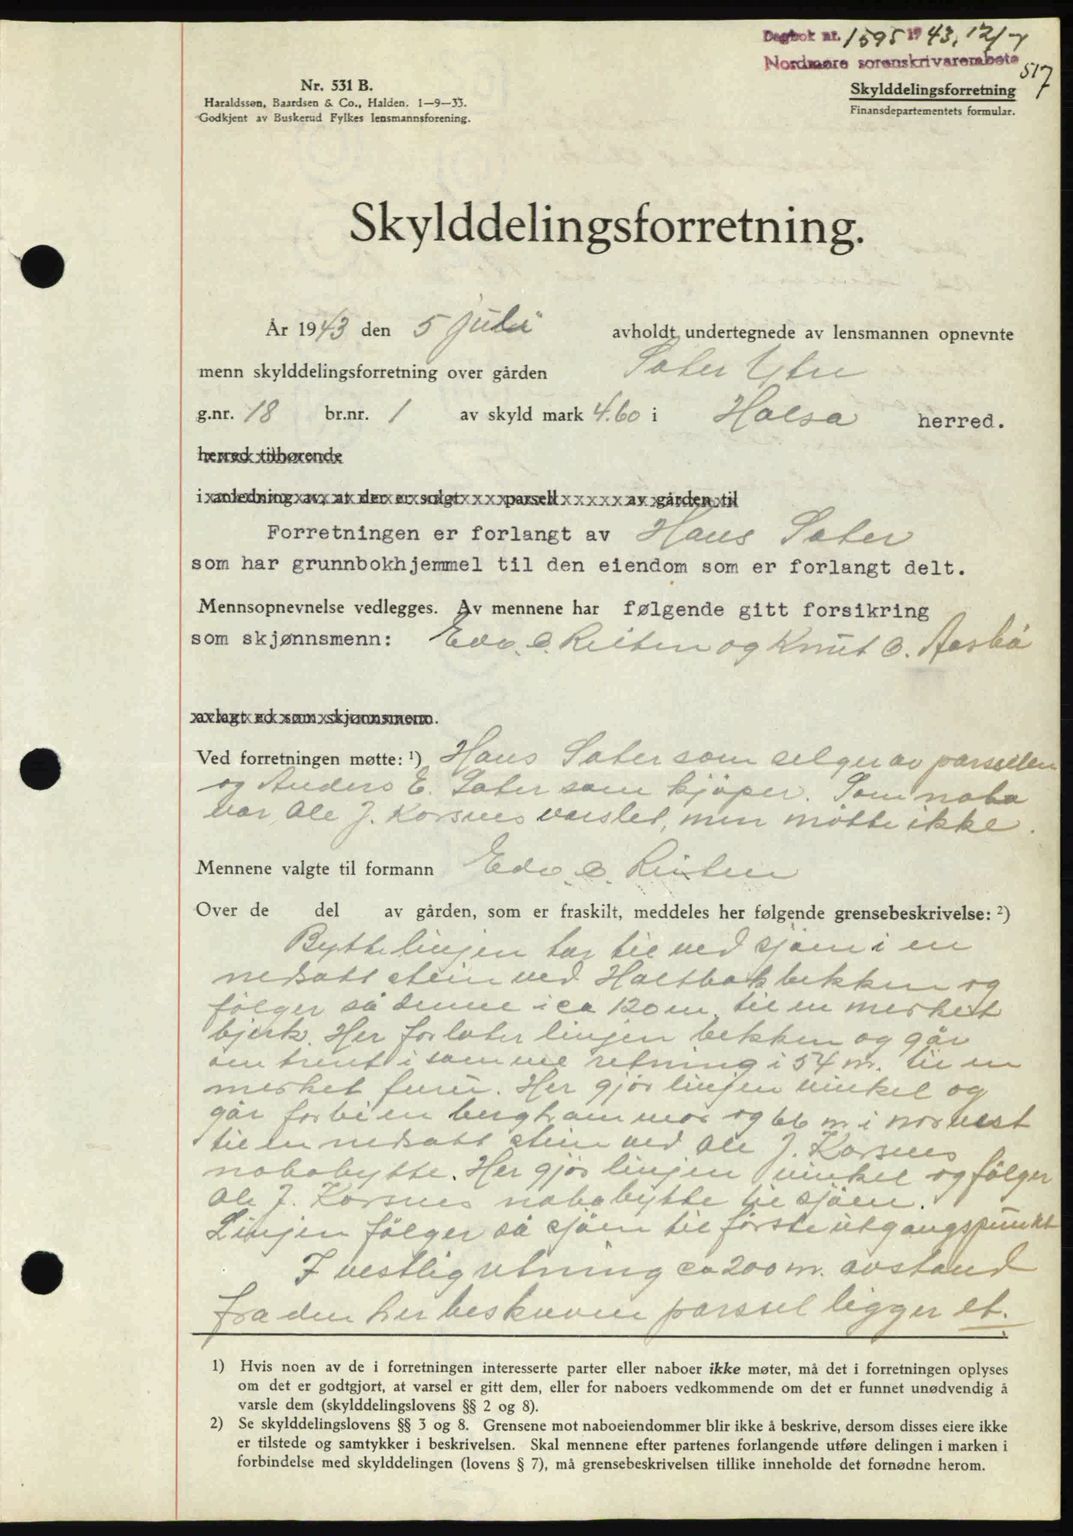 Dagbok nr. 1595 1943, 12/7
Nordmøre sorenskrivarembete
517
Nr. 531 B.
Haraldssøn, Baardsen & Co., Halden. 1—9—33.
Godkjent av Buskerud Fylkes lensmannsforening.
Skylddelingsforretning
Finansdepartementets formular.
Skylddelingsforretning.
År 1943 den 5 juli avholdt undertegnede av lensmannen opnevnte
menn skylddelingsforretning over gården Sater Ytre
g.nr. 18 br.nr. 1 av skyld mark 4.60 i Halsa herred.
herred tilhørende
i anledning av, at der er solgt parsell av gården til
Forretningen er forlangt av Hans Sater
som har grunnbokhjemmel til den eiendom som er forlangt delt.
Mennsopnevnelse vedlegges. Av mennene har følgende gitt forsikring
som skjønnsmenn: Edv. C. Reiten og Knut O. Aasbö
avlagt ed som skjønnsmenn.
Ved forretningen møtte: ¹) Hans Sater som selger av parsellen
og Anders E. Sater som kjöper. Som nabo
var Ole J. Korsnes varslet, men mötte ikke.
Mennene valgte til formann Edv. C. Reiten
Over de del av gården, som er fraskilt, meddeles her følgende grensebeskrivelse: ²)
Byttelinjen tar til ved sjöen i en
nedsatt stein ved Holtbakbekken og
fölger så denne i ca 120 m. til en merket
bjerk. Her forlater linjen bekken og går
omtrent i samme retning i 54 m. til en
merket furu. Her gjör linjen vinkel og
går forbi en berghammer og 66 m i norvest
til en nedsatt stein ved Ole J. Korsnes
nabobytte. Her gjör linjen vinkel og fölger
Ole J. Korsnes nabobytte til sjöen.
Linjen fölger så sjöen til förste utgangspunkt
I vestlig retning ca 200 m. avstand
fra den her beskrevne parsell ligger et.
1) Hvis noen av de i forretningen interesserte parter eller naboer ikke møter, må det i forretningen oplyses
om det er godtgjort, at varsel er gitt dem, eller for naboers vedkommende om det er funnet unødvendig å
varsle dem (skylddelingslovens §§ 2 og 8).
2) Se skylddelingslovens §§ 3 og 8. Grensene mot naboeiendommer blir ikke å beskrive, dersom disses eiere ikke
er tilstede og samtykker i beskrivelsen. Skal mennene efter partenes forlangende utføre delingen i marken i
forbindelse med skylddelingen (lovens § 7), må grensebeskrivelsen tillike inneholde det fornødne herom.